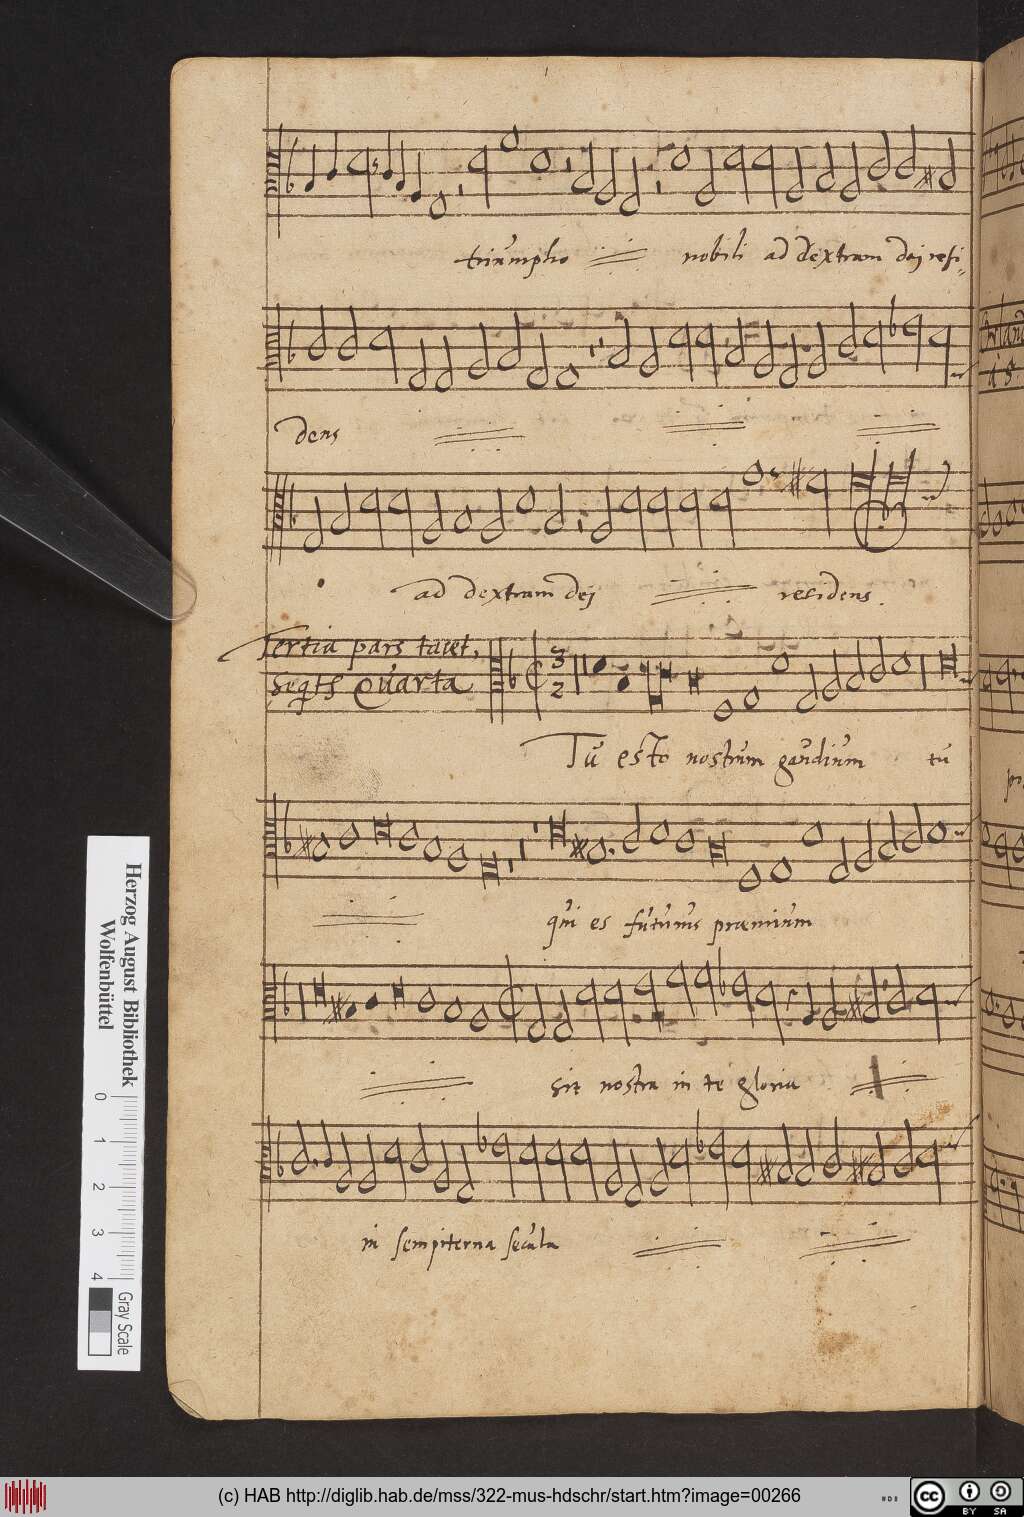 triumpho nobili ad dextram dei resi-
dens
ad dextram dei residens.
Tertia pars tacet,
Seqts Quarta
3
2
Tu esto nostrum gaudium tu
qui es futurus praemium
sit nostra in te gloria
in sempiterna secula
Herzog August Bibliothek
Wolfenbüttel
0 1 2 3 4
Gray Scale
(c) HAB http://diglib.hab.de/mss/322-mus-hdschr/start.htm?image=00266
cc
BY SA